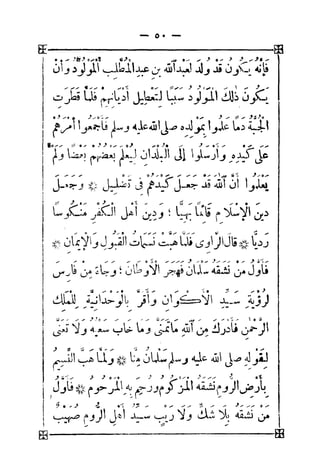 — ٥٠ —
فَإِنَّهُ يَكُونُ قَدْ وُلِدَ لِعَبْدِ ٱللّٰهِ بْنِ عَبْدِ الْمُطَّلِبِ ٱلْمَوْلُودُ وَأَنْ
يَكُونَ ذٰلِكَ الْمَوْلُودُ سَبَبًا لِتَعْطِيلِ أَدْيَانِهِمْ فَلَمَّا قَطَرَتِ
الْجُبَّةُ دَمًا عَلِمُوا بِمَوْلِدِهِ صلى الله عليه وسلم فَأَجْمَعُوا أَمْرَهُمْ
عَلَى كَيْدِهِ وَأَرْسَلُوا إِلَى ٱلْبُلْدَانِ لِيُعْلِمَ بَعْضُهُمْ بَعْضًا وَلَمْ
يَعْلَمُوا أَنَّ ٱللّٰهَ قَدْ جَعَلَ كَيْدَهُمْ فِي تَضْلِيلٍ * وَجَعَلَ
دِينَ الْإِسْلَامِ قَائِمًا بَهِيًّا ؛ وَدِينَ أَهْلِ الْكُفْرِ مَنْكُوسًا
رَدِيًّا * قَالَ الرَّاوِى فَلَمَّا هَبَّتْ نَسَمَاتُ الْقَبُولِ وَالْإِيمَانِ *
فَأَوَّلُ مَنْ نَشَقَهُ سَلْمَانُ فَهَجَرَ الْأَوْطَانَ ؛ وَجَاءَ مِنْ فَارِسَ
لِرُؤْيَةِ سَيِّدِ الْأَكْوَانِ وَأَقَرَّ بِالْوَحْدَانِيَّةِ لِلْمَلِكِ
الرَّحْمٰنِ فَأَدْرَكَ مِنَ ٱللّٰهِ مَا تَمَنَّى وَمَا خَابَ سَعْيُهُ وَلَا تَعَنَّى
لِقَوْلِهِ صلى الله عليه وسلم سَلْمَانُ مِنَّا * وَلَمَّا هَبَّ النَّسِيمُ
بِأَرْضِ الرُّومِ نَشَقَهُ الْمَزْكُومُ وَرُحِمَ بِهِ الْمَرْحُومُ * فَأَوَّلُ
مَنْ نَشَقَهُ بِلَا شَكٍّ وَلَا رَيْبٍ سَيِّدُ أَهْلِ الرُّومِ صُهَيْبٌ